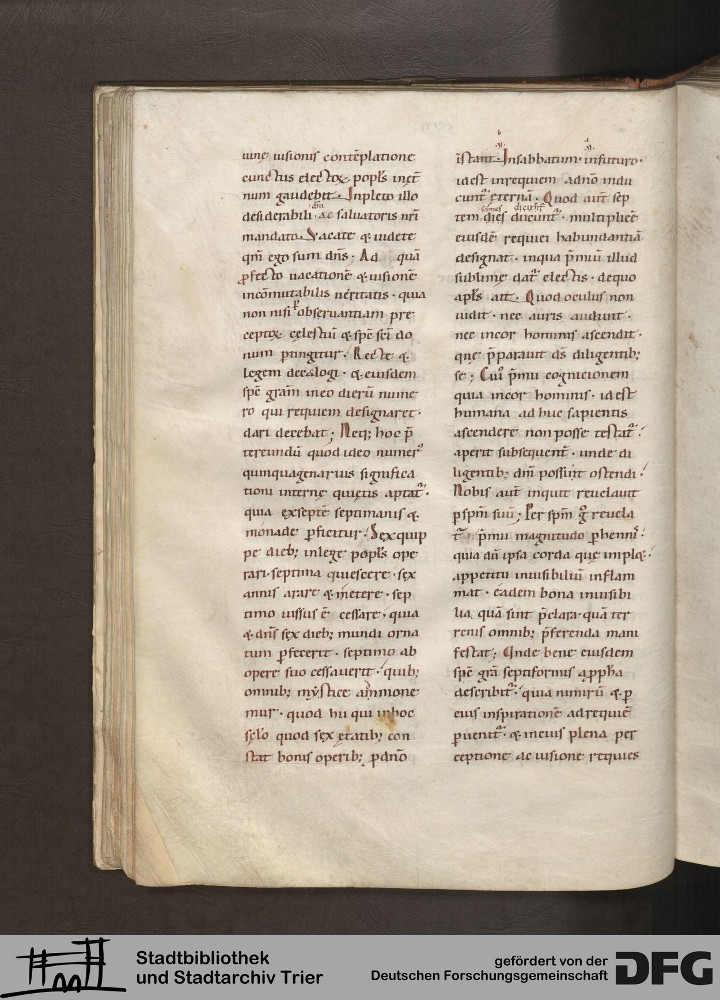 iune uisionis contēplatione
cunctus electoꝝ popls inet̄
num gaudebit. Inpleto illo
desiderabili ac saluatoris nr̄i
mandato. Vacate & uidete
qm̄ ego sum dn̄s. Ad quā
ꝓfecto uacationē & uisionē
incōmutabilis ueritatis. quia
non nisi ꝑ obseruantiam pre
ceptoꝝ celestiū & spē sc̄i do
num ꝑtingitur. Recte &
legem decalogi. & eiusdem
spē grām in eo dierū nume
ro qui requiem designaret.
dari decebat; Neq; hoc p̄
tereundū quod ideo numer᷒
quinquagenarius significa
tioni interne quietis aptat᷑.
quia ex septē septimanis &
monade ꝑficitur. Sex quip
pe dieb; in lege popls ope
rari. septima quiescere. sex
annis arare & metere. sep
timo iussus ē cessare. quia
& dn̄s sex dieb; mundi orna
tum ꝑfecerit. septimo ab
opere suo cessauerit. quib;
omnib; mystice ammone
mur. quod hii qui in hoc
sc̄lo quod sex ętatib; con
stat bonis operib; ꝓ dn̄o
īstant. In sabbatum. in futuro.
id est in requiem a dn̄o indu
cunt᷑ ęternā. Quod aut̄ sep
tem dies dicunt᷑. multiplicē
eiusdē requiei habundantiā
designat. in qua p̄miū illud
sublime dat᷑ electis. de quo
apls ait. Quod oculus non
uidit. nec auris audiuit.
nec in cor hominis ascendit.
que p̄parauit ds̄ diligentib;
se; Cui᷒ p̄mii cognicionem
quia in cor hominis. id est
humana adhuc sapientis
ascendere non posse testat᷑.
aperit subsequent᷑. unde di
ligentib; dm̄ possint ostendi.
Nobis aut̄ inquit reuelauit
ꝑ spm̄ suū; Per spm̄ g̊ reuela
t᷑ p̄mii magnitudo ꝑhennis.
quia dū ipsa corda que implet.
appetitu inuisibiliū inflam
mat. eadem bona inuisibi
lia quā sint p̄clara. quā ter
renis omnib; p̄ferenda mani
festat; Unde bene eiusdem
spē grā septiformis a ꝓpha
describit᷑. quia nimirū & ꝑ
eius inspirationē ad requiē
ꝑuenit᷑. & in eius plena per
ceptione ac uisione requies
Stadtbibliothek
und Stadtarchiv Trier
gefördert von der
Deutschen Forschungsgemeinschaft
DFG